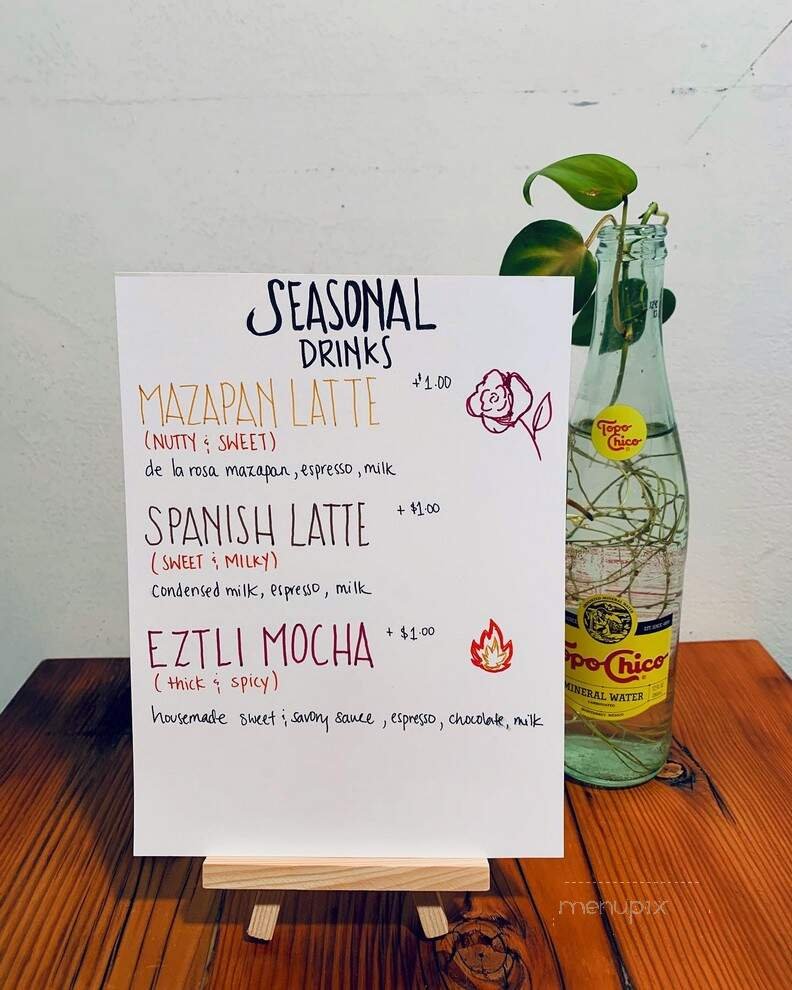 SEASONAL
DRINKS
MAZAPAN LATTE +$1.00
(NUTTY & SWEET)
de la rosa mazapan, espresso, milk
SPANISH LATTE + $1.00
(SWEET & MILKY)
condensed milk, espresso, milk
EZTLI MOCHA + $1.00
(thick & spicy)
housemade sweet & savory sauce, espresso, chocolate, milk
Topo
Chico
TopoChico
MINERAL WATER
menupix